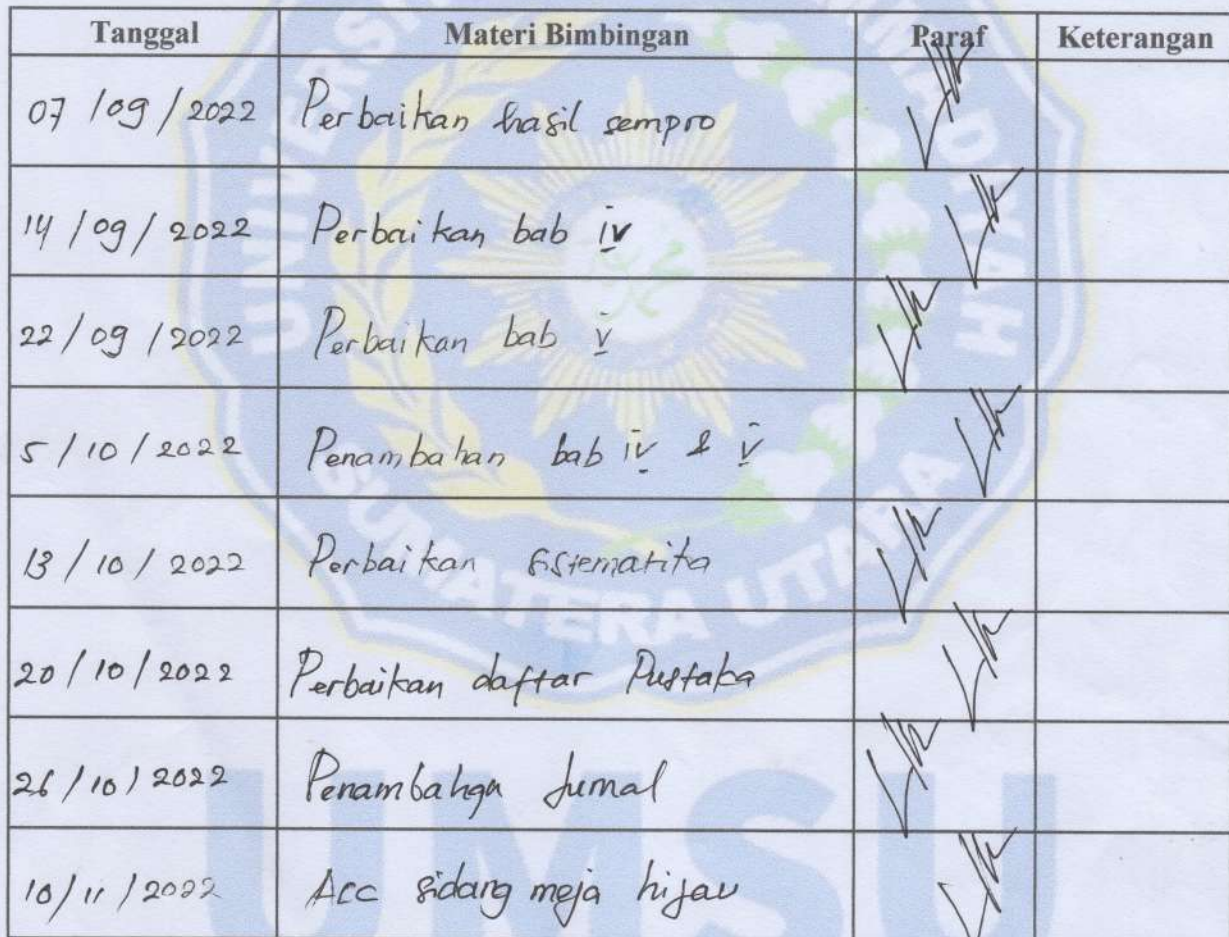 Tanggal Materi Bimbingan Paraf Keterangan
07 / 09 / 2022 Perbaikan hasil sempro
14 / 09 / 2022 Perbaikan bab IV
22 / 09 / 2022 Perbaikan bab V
5 / 10 / 2022 Penambahan bab IV & V
13 / 10 / 2022 Perbaikan sistematika
20 / 10 / 2022 Perbaikan daftar Pustaka
26 / 10 / 2022 Penambahan Jurnal
10 / 11 / 2022 Acc sidang meja hijau
SUMATERA UTARA
UMSU